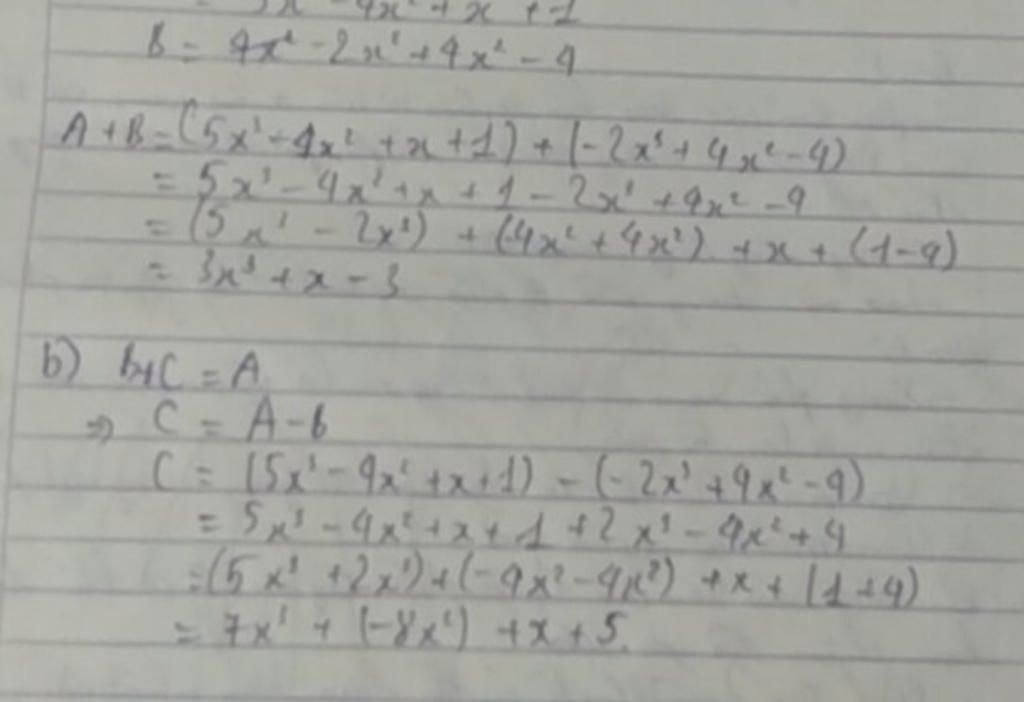 5x³ - 4x² + x + 1
B = 4x² - 2x³ + 4x² - 4
A + B = (5x³ - 4x² + x + 1) + (-2x³ + 4x² - 4)
= 5x³ - 4x² + x + 1 - 2x³ + 4x² - 4
= (5x³ - 2x³) + (-4x² + 4x²) + x + (1 - 4)
= 3x³ + x - 3
b) B + C = A
⇒ C = A - B
C = (5x³ - 4x² + x + 1) - (-2x³ + 4x² - 4)
= 5x³ - 4x² + x + 1 + 2x³ - 4x² + 4
= (5x³ + 2x³) + (-4x² - 4x²) + x + (1 + 4)
= 7x³ + (-8x²) + x + 5.